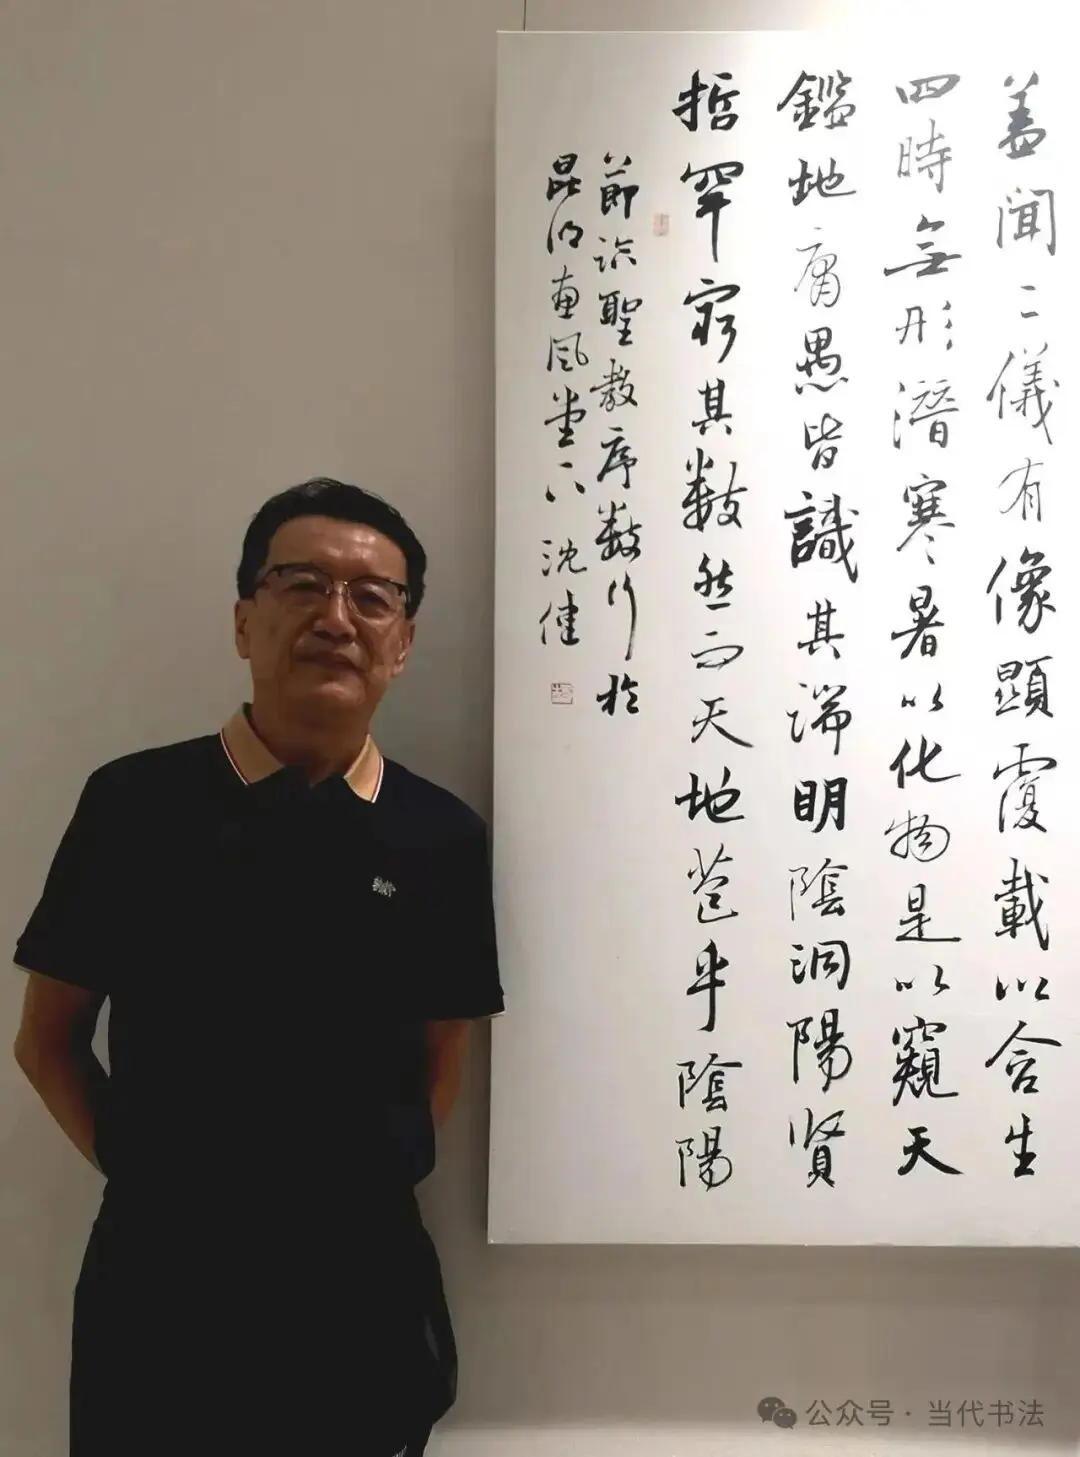 盖聞二儀有像顯覆載以含生
四時無形潛寒暑以化物是以窺天
鑑地庸愚皆識其端明陰洞陽賢
哲罕窮其數然而天地苞乎陰陽
節臨聖教序數行於
昆明惠風堂下 沈健
公众号·当代书法